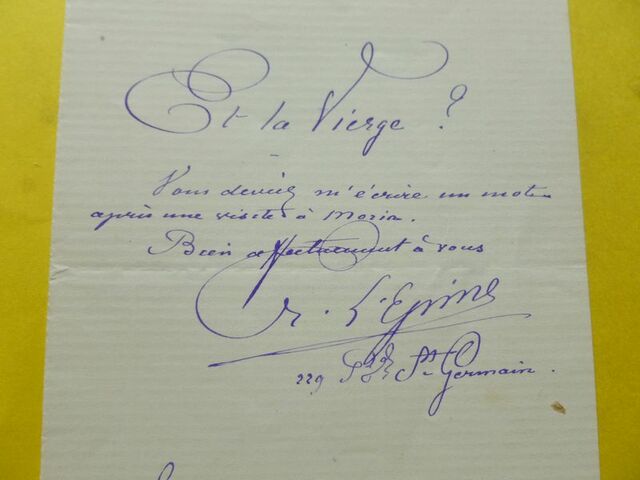 Et la Vierge ?
Vous deviez m'écrire un mot
après une visite à Morin.
Bien affectueusement à vous
L'Epine
229 Bd St Germain.